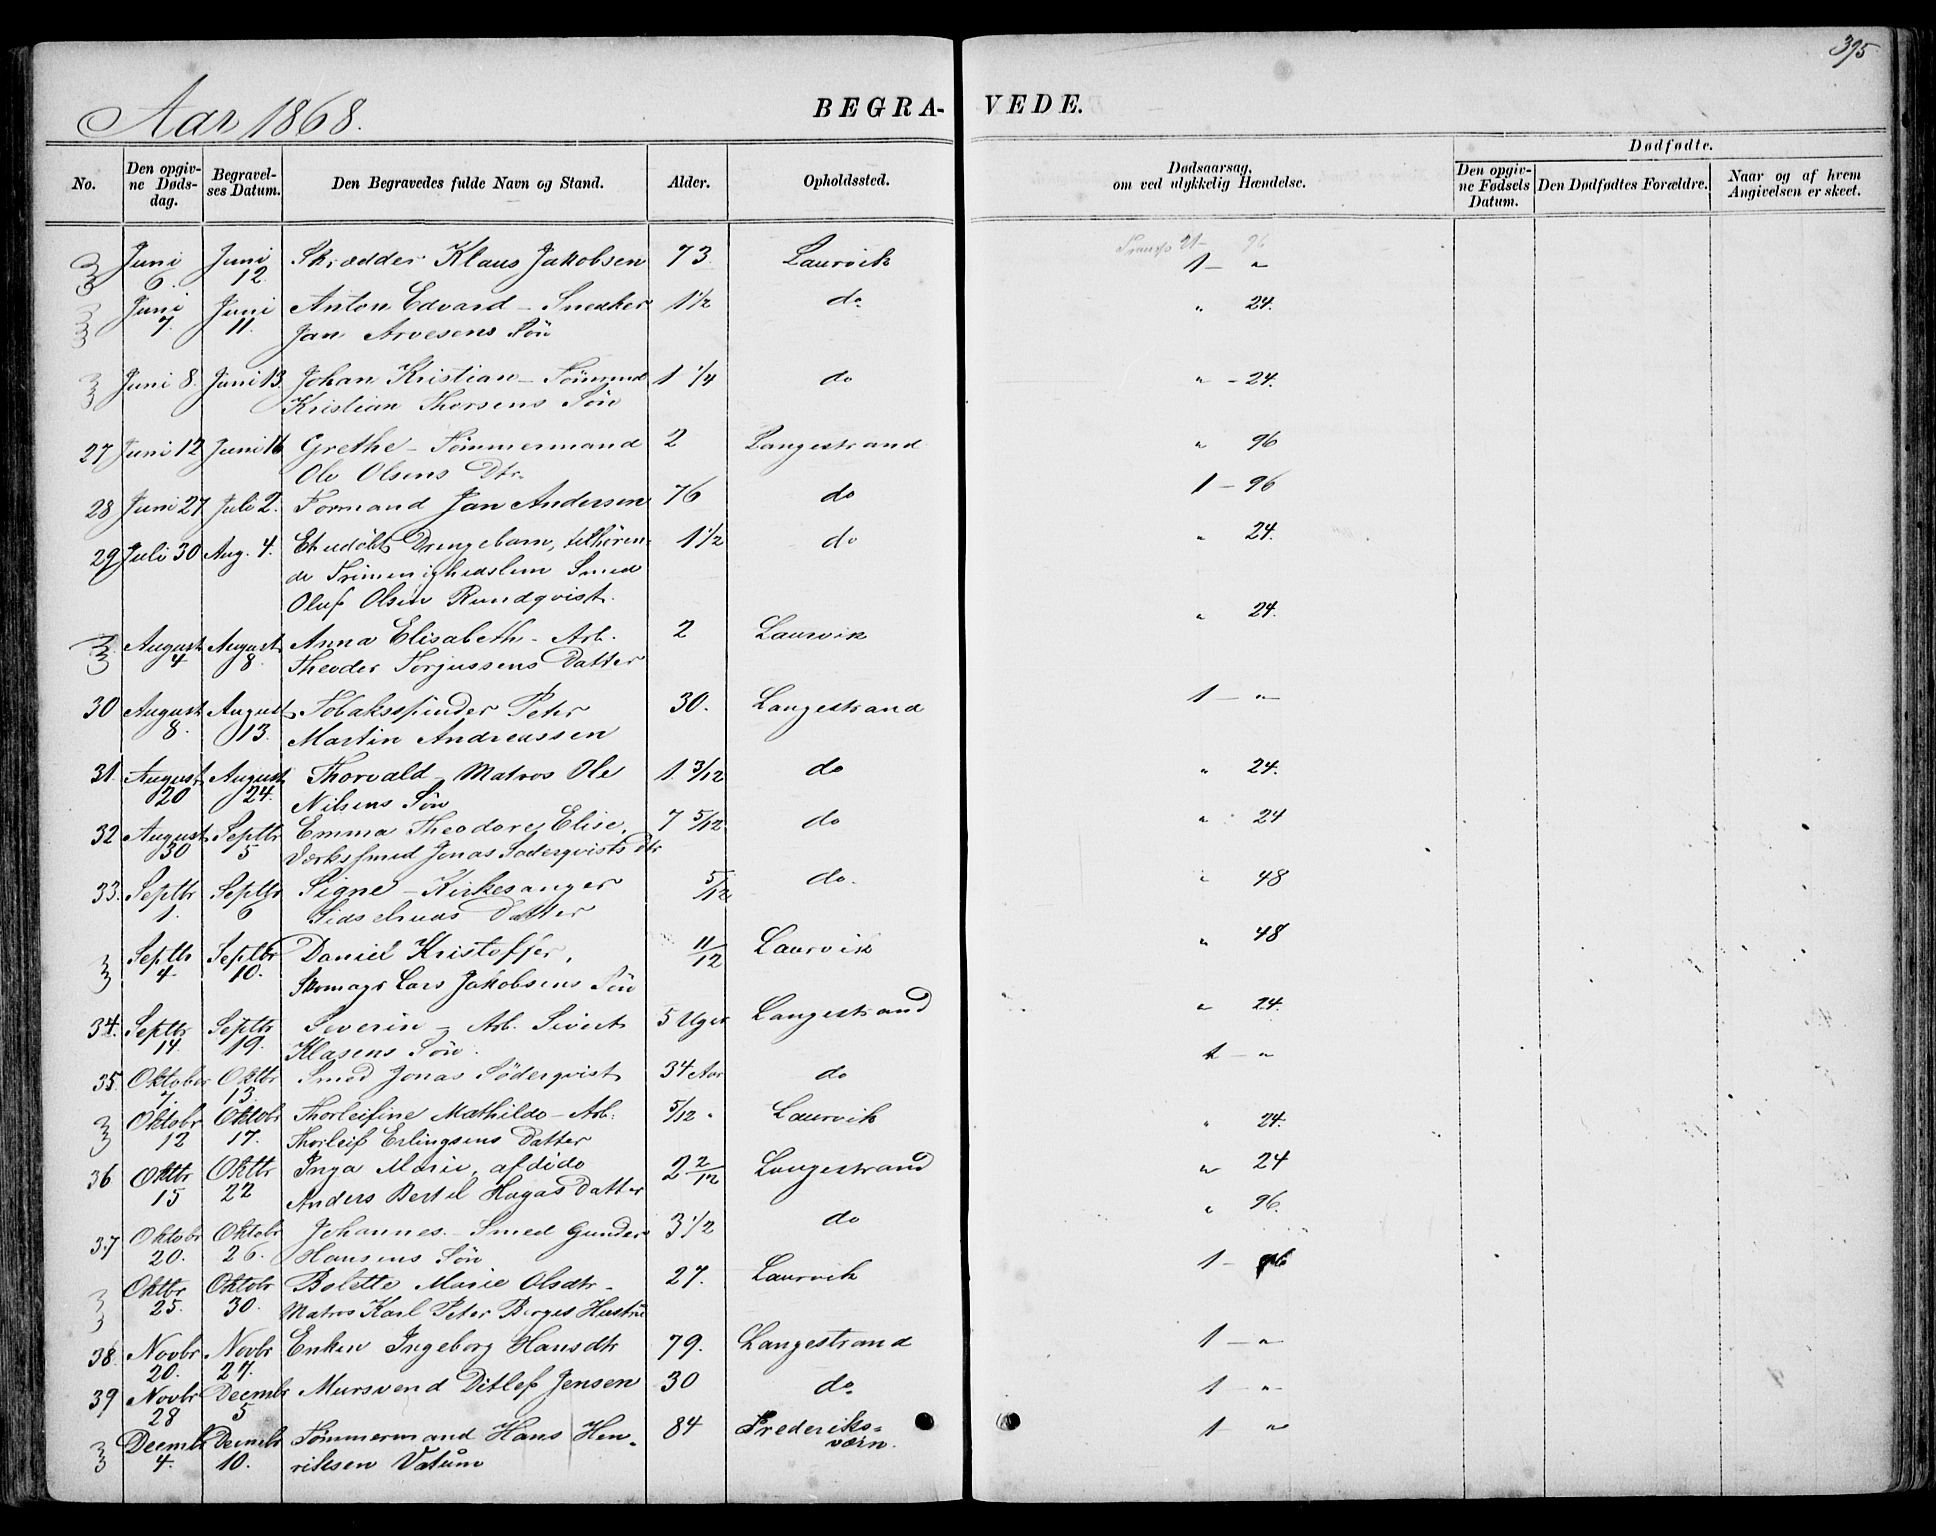 395
Aar 1868.
BEGRA- VEDE.
No. Den opgiv- Begravel- Den Begravedes fulde Navn og Stand. Alder. Opholdssted. Dødsaarsag, Den opgiv- Dødfødte.
ne Døds- ses Datum. om ved ulykkelig Hændelse. ne Fødsels Den Dødfødtes Forældre. Naar og af hvem
dag. Datum. Angivelsen er skeet.
Transp 21 - 96
Juni Juni Skrædder Klaus Jakobsen 73 Laurvik 1 - "
6. 12.
Juni Juni Anton Edvard - Snedker 1 1/2 do " 24.
7. 11. Jan Arvesens Søn
Juni 8. Juni 13. Johan Kristian - Tömmmd 1 1/4 do " - 24.
Kristian Thorsens Søn
27 Juni 12 Juni 16 Grethe - Tömmermand 2 Langestrand " 96
Ole Olsens Dtr.
28 Juni 27 Juli 2. Formand Jan Andersen 76 do 1 - 96
29 Juli 30 Aug. 4. Et udöbt Drengebarn, tilhören- 1 1/2 do " 24.
de Frimenighedslem Smed
Oluf Olsen Rundqvist.
August August Anna Elisabeth - Arb. 2 Laurvik " 24.
4 8. Theodor Torjussens Datter
30 August August Tobaksspinder Peter 30. Langestrand 1 - "
8. 13. Martin Andreassen
31. August August Thorvald - Matros Ole 1 3/12 do " 24.
20 24. Nilsens Søn
32 August Septbr Emma Theodore Elise, 7 5/12 do " 24
30 5 Værkssmed Jonas Söderqvists Dtr
33. Septbr Septbr Signe - Kirkesanger 5/12 do. " 48
1. 6 Sidselruds Datter
Septbr Septbr Daniel Kristoffer, 11/12 Laurvik " 48
4. 10. Skomagr Lars Jakobsens Søn
34. Septbr Septbr Severin - Arb. Sivert 5 Uger Langestrand " 24.
14. 19. Klasens Søn.
35. Oktober Oktbr Smed Jonas Söderqvist 34 Aar do 1 - "
7 13.
Oktobr Oktobr Thorleifine Mathilde - Arb. 5/12 " Laurvik " 24.
12 17. Thorleif Erlingsens Datter
36 Oktbr Oktbr Inga Marie, afdøde 2 2/12 Langestrand " 24
15 22 Anders Bertel Hagas Datter
37 Oktobr Oktobr Johannes - Smed Gunder 3 1/2 do " 96.
20. 26. Hansens Søn
Oktbr Oktobr Bolette Marie Olsdtr - 27. Laurvik 1 - 96
25. 30. Matros Karl Peter Berges Hustru
38 Novbr Novbr Enken Ingeborg Hansdtr 79. Langestrand 1 - "
20. 27.
39 Novbr Decembr Mursvend Ditlef Jensen 30 do. 1 - "
28 5
Decembr Decmbr Tömmermand Hans Hen- 84 Frederiks- 1 - "
4. 10. riksen Vatum værn.